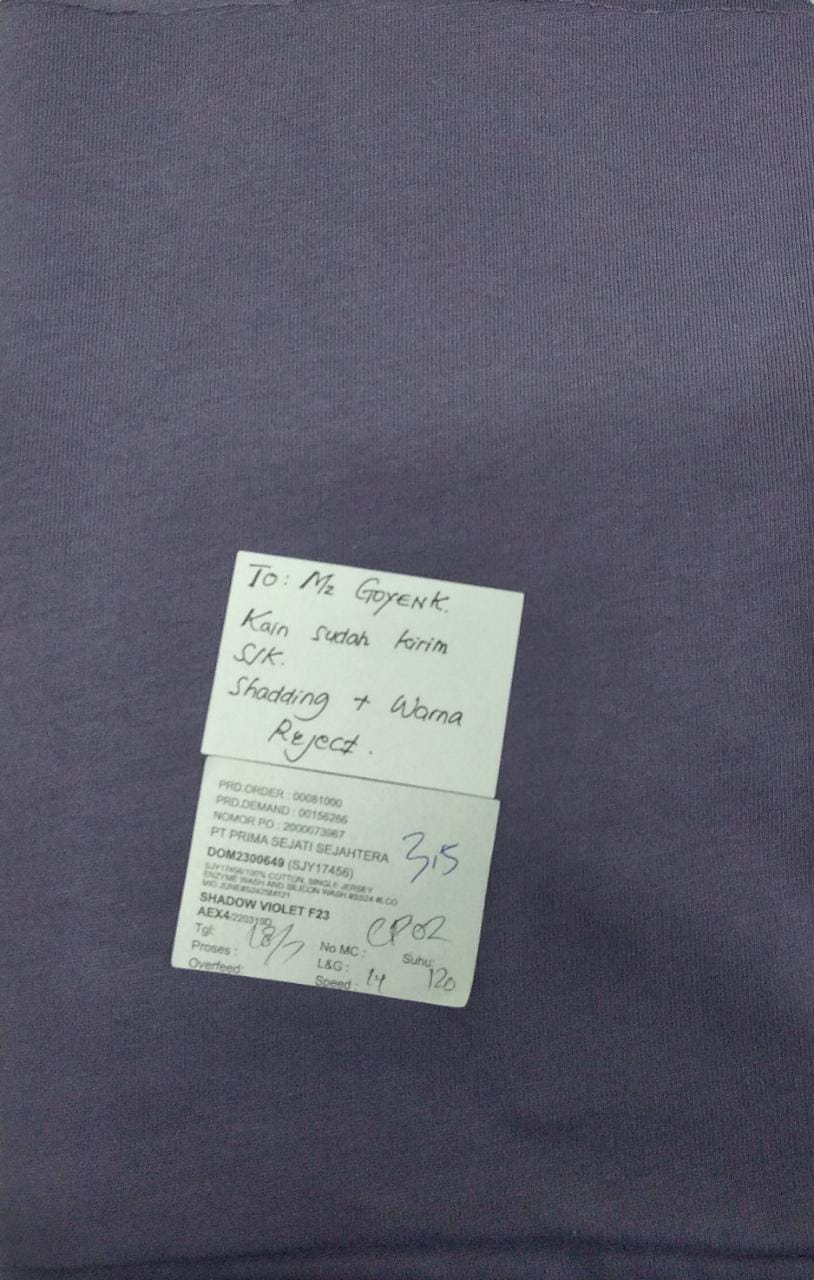 To: Mz GOYENK.
Kain sudah kirim
S/K.
Shadding + Warna
Reject.
PRD.ORDER : 00081000
PRD.DEMAND : 00156266
NOMOR PO : 2000073967
PT PRIMA SEJATI SEJAHTERA
3,5
DOM2300649 (SJY17456)
SJY17456/100% COTTON, SINGLE JERSEY
ENZYME WASH AND SILICON WASH #SS24 #LCO
MID JUNE#S2425M121
SHADOW VIOLET F23
AEX4/220319D
Tgl: 18/7
No MC : CP02
Proses :
L&G :
Suhu: 120
Overfeed:
Speed : 14